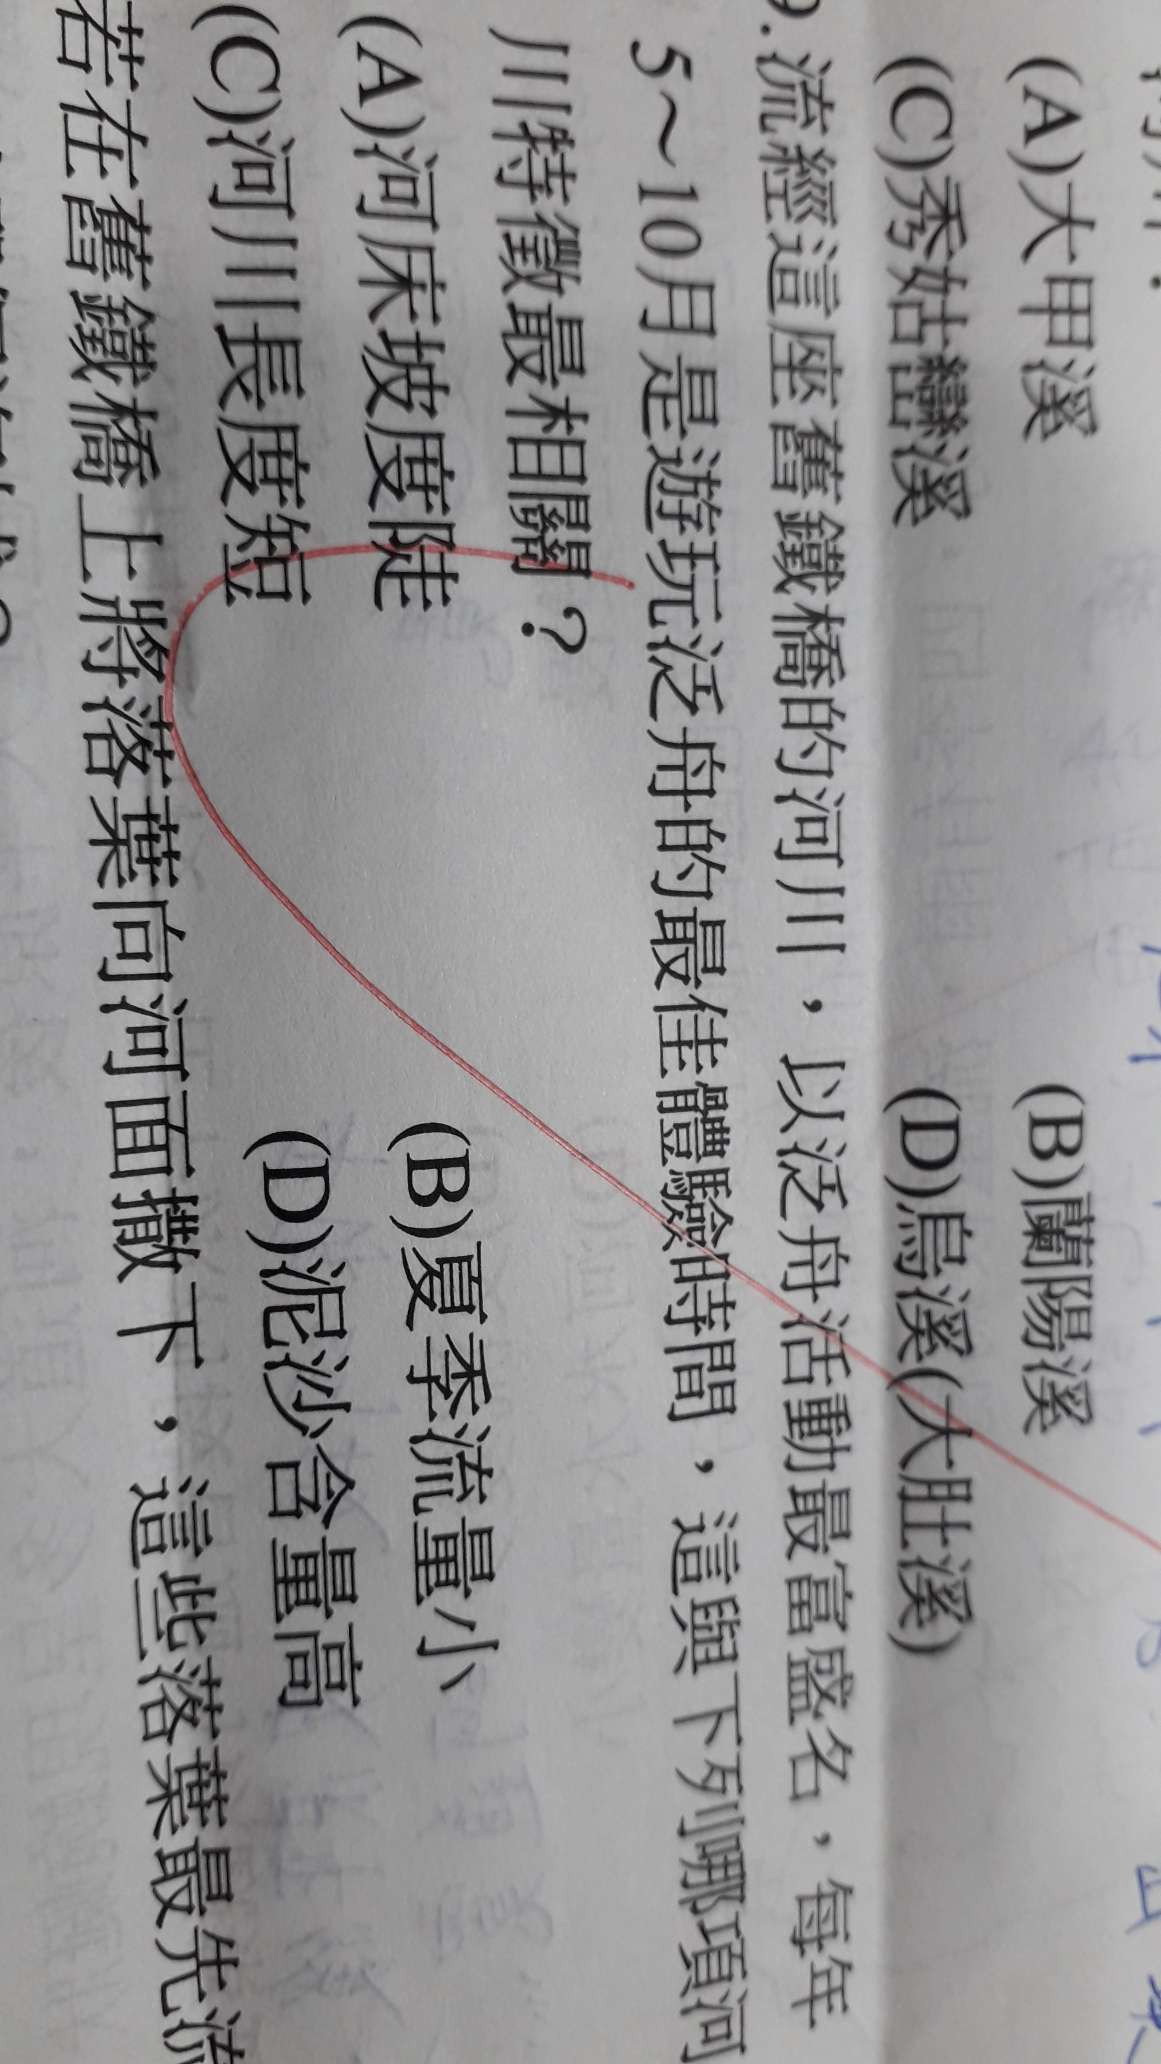 (A)大甲溪 (B)蘭陽溪
(C)秀姑巒溪 (D)烏溪(大肚溪)
9.流經這座舊鐵橋的河川，以泛舟活動最富盛名，每年
5～10月是遊玩泛舟的最佳體驗時間，這與下列哪項河
川特徵最相關？
(A)河床坡度陡 (B)夏季流量小
(C)河川長度短 (D)泥沙含量高
若在舊鐵橋上將落葉向河面撒下，這些落葉最先流